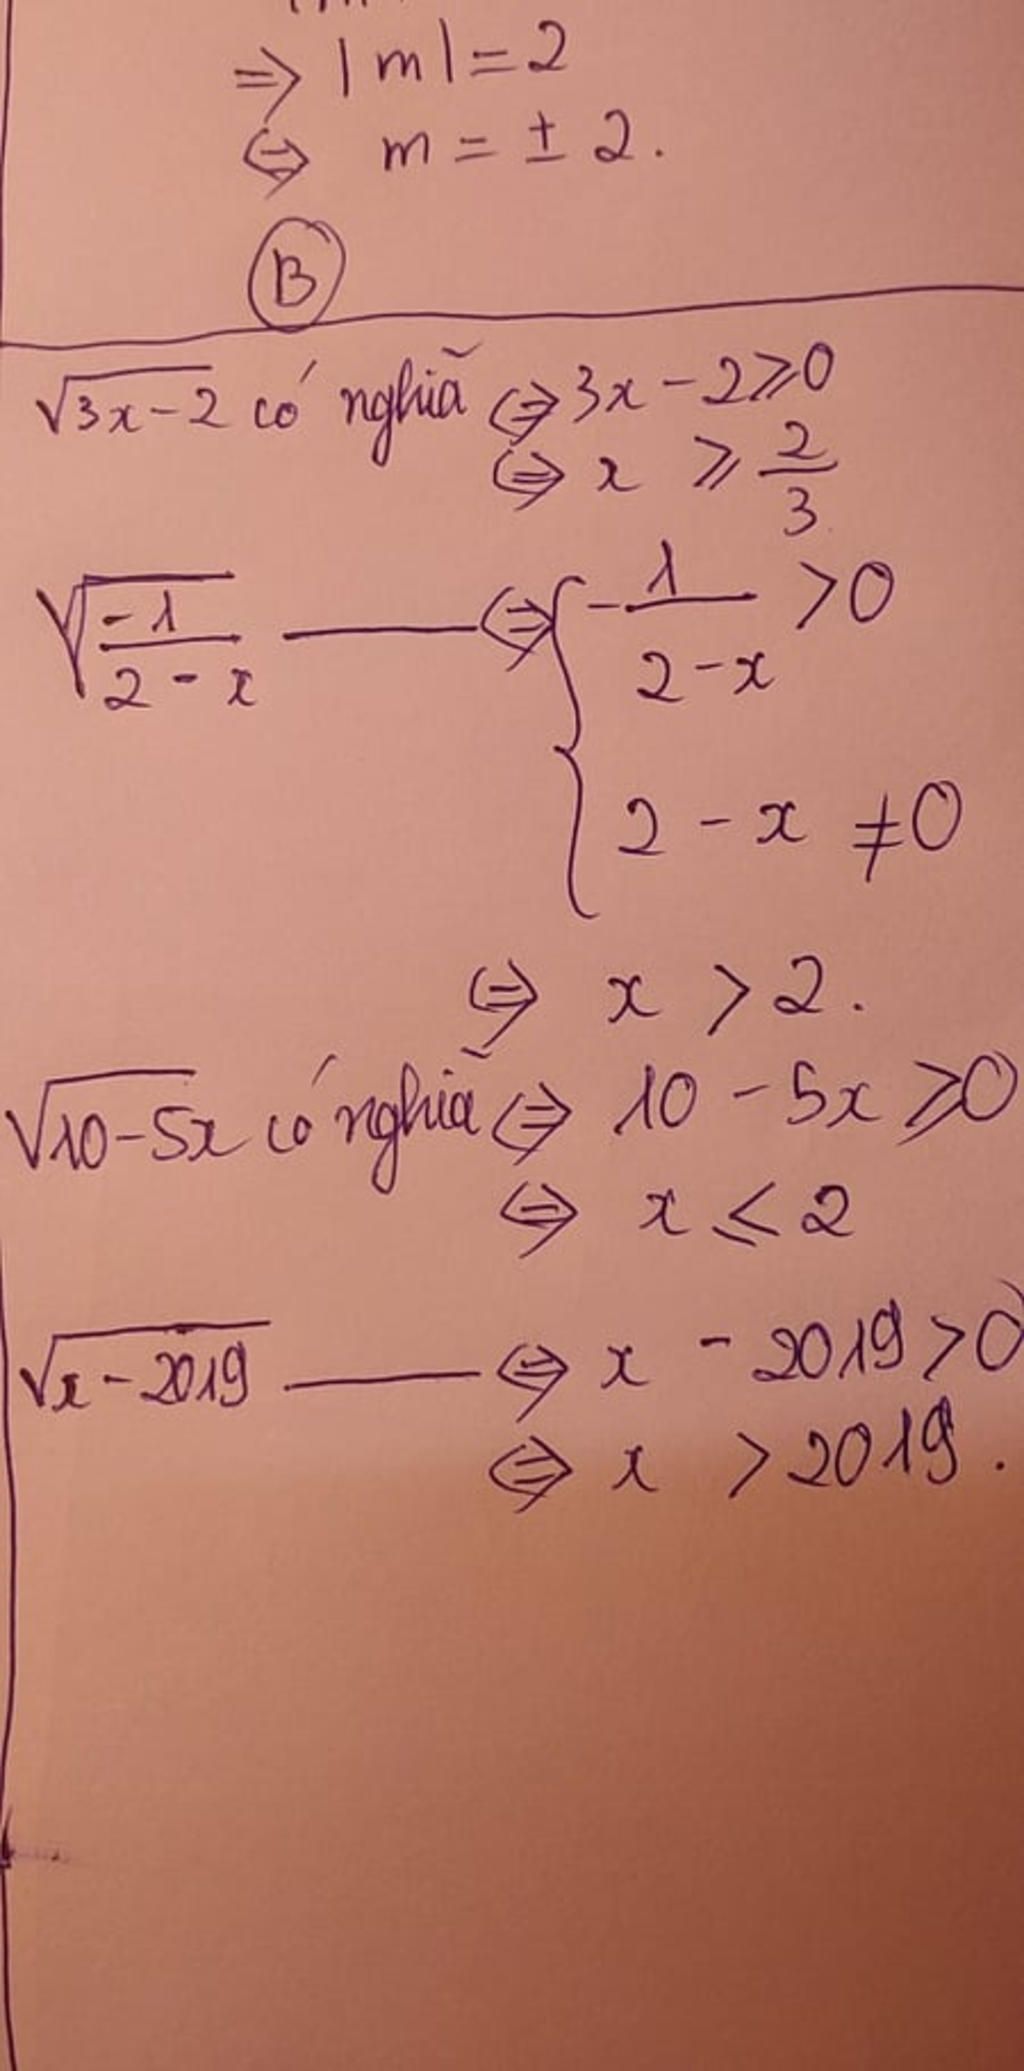 => |m| = 2
<=> m = ± 2.
B
√3x-2 có nghĩa <=> 3x - 2 ≥ 0
<=> x ≥ 2/3
√(-1/(2-x)) ——— <=> { -1/(2-x) > 0
2 - x ≠ 0
<=> x > 2.
√10-5x có nghĩa <=> 10 - 5x ≥ 0
<=> x ≤ 2
√x-2019 ——— <=> x - 2019 > 0
<=> x > 2019.